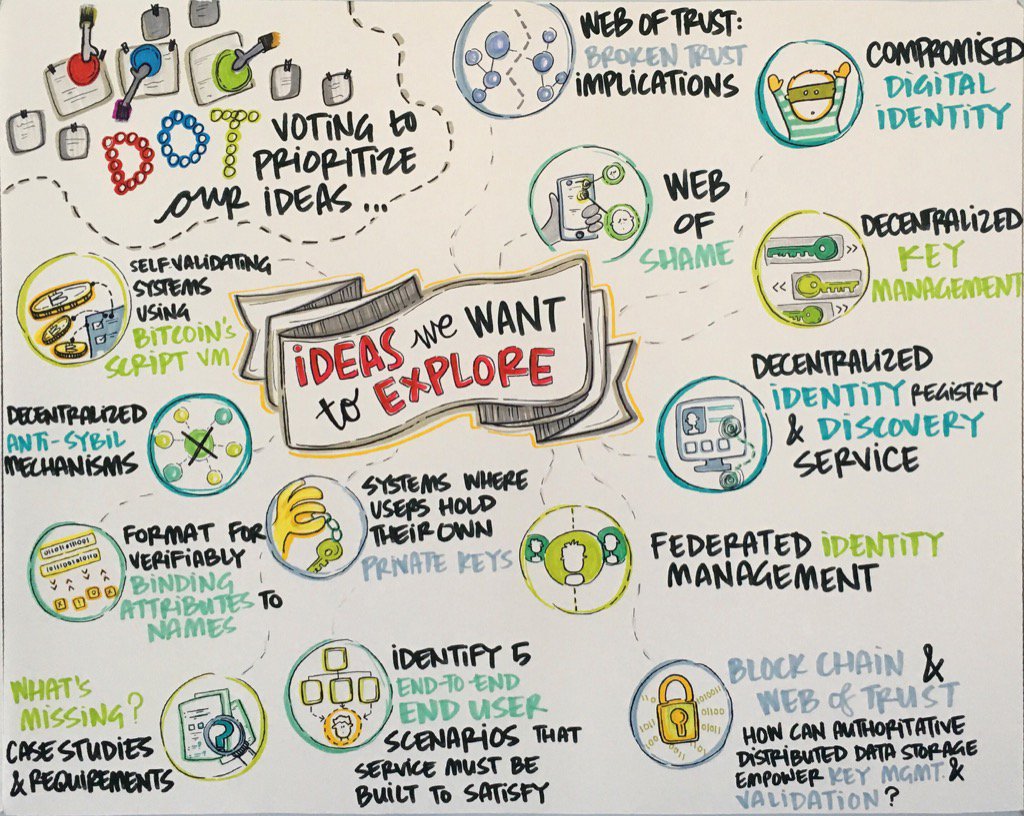 DOT
VOTING to
PRIORITIZE
OUR IDEAS ...
WEB OF TRUST:
BROKEN TRUST
IMPLICATIONS
COMPROMISED
DIGITAL
IDENTITY
WEB
OF
SHAME
DECENTRALIZED
KEY
MANAGEMENT
SELF-VALIDATING
SYSTEMS
USING
BITCOIN'S
SCRIPT VM
IDEAS we WANT
to EXPLORE
DECENTRALIZED
IDENTITY REGISTRY
& DISCOVERY
SERVICE
DECENTRALIZED
ANTI-SYBIL
MECHANISMS
SYSTEMS WHERE
USERS HOLD
THEIR OWN
PRIVATE KEYS
FORMAT FOR
VERIFIABLY
BINDING
ATTRIBUTES TO
NAMES
FEDERATED IDENTITY
MANAGEMENT
WHAT'S
MISSING?
CASE STUDIES
& REQUIREMENTS
IDENTIFY 5
END-TO-END
END USER
SCENARIOS THAT
SERVICE MUST BE
BUILT TO SATISFY
BLOCK CHAIN &
WEB OF TRUST
HOW CAN AUTHORITATIVE
DISTRIBUTED DATA STORAGE
EMPOWER KEY MGMT &
VALIDATION?